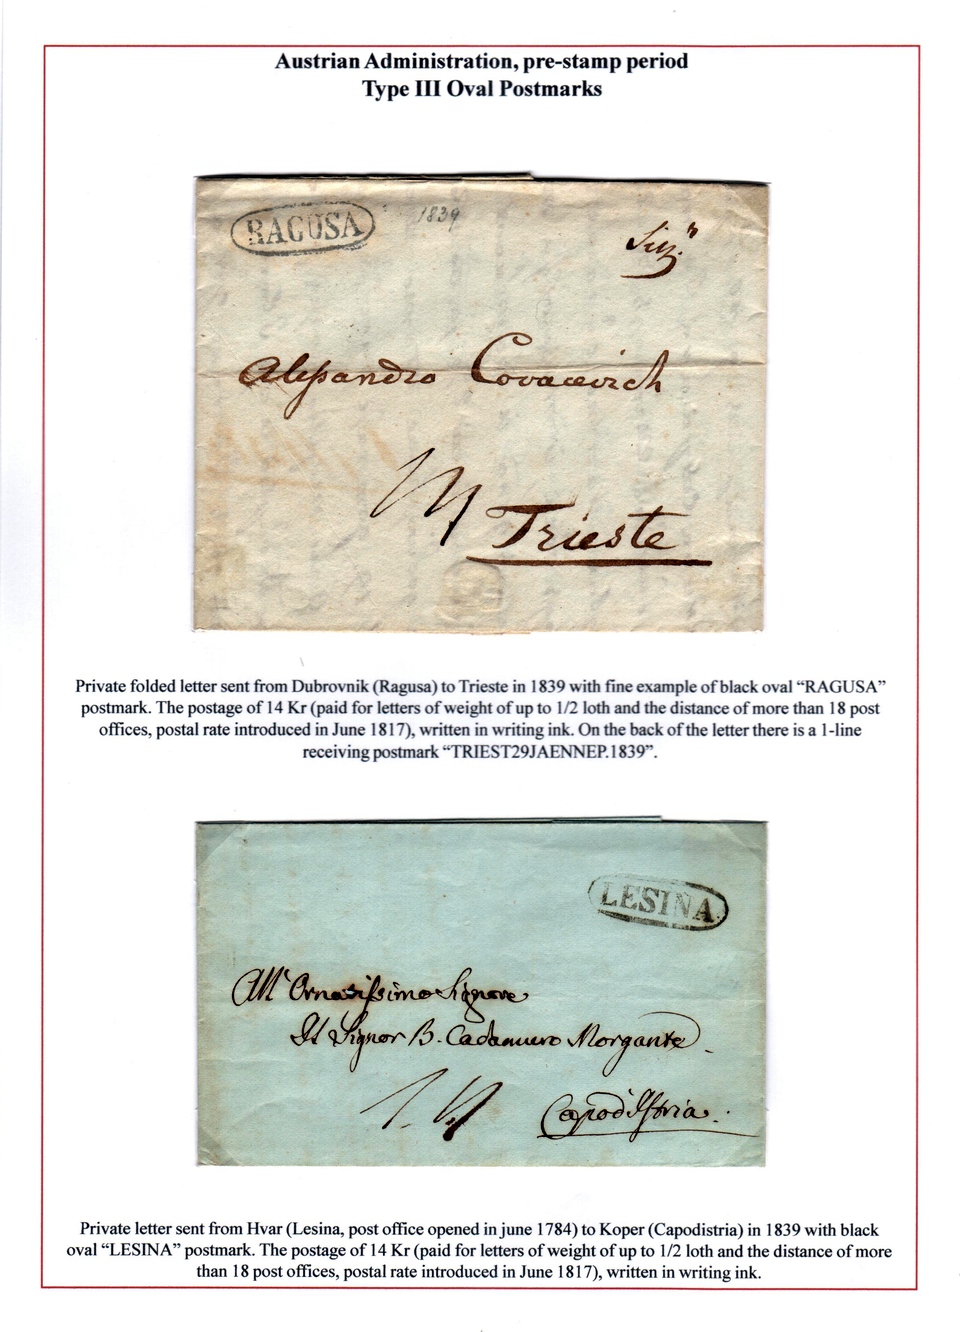 Austrian Administration, pre-stamp period
Type III Oval Postmarks
RAGUSA
1839
Alessandro Covacevich
14
Trieste
Private folded letter sent from Dubrovnik (Ragusa) to Trieste in 1839 with fine example of black oval “RAGUSA”
postmark. The postage of 14 Kr (paid for letters of weight of up to 1/2 loth and the distance of more than 18 post
offices, postal rate introduced in June 1817), written in writing ink. On the back of the letter there is a 1-line
receiving postmark “TRIEST29JAENNEP.1839”.
LESINA
All' Ornatissimo Signore
Il Signor B. Cadamuro Morgante
14
Capod'Istria.
Private letter sent from Hvar (Lesina, post office opened in june 1784) to Koper (Capodistria) in 1839 with black
oval “LESINA” postmark. The postage of 14 Kr (paid for letters of weight of up to 1/2 loth and the distance of more
than 18 post offices, postal rate introduced in June 1817), written in writing ink.